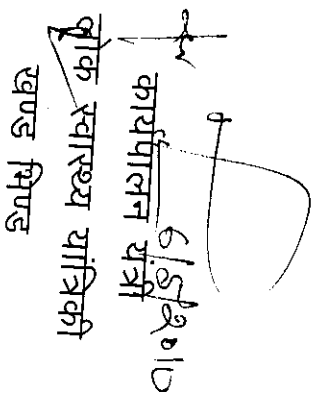 कार्यपालन यंत्री
लोक स्वास्थ्य यांत्रिकी
खण्ड भिण्ड